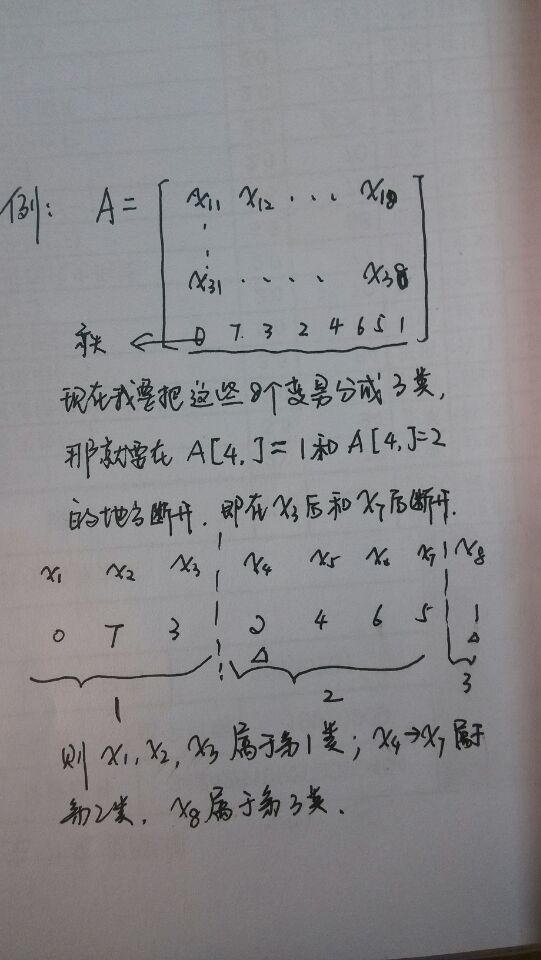 例: A = [ x₁₁ x₁₂ · · · x₁₈
⋮
x₃₁ · · · · x₃₈
秩 ← 0 7 3 2 4 6 5 1 ]
现在我要把这些8个变量分成3类,
那就要在 A[4,]=1和A[4,]=2
的地方断开. 即在x₃后和x₇后断开.
x₁ x₂ x₃ x₄ x₅ x₆ x₇ x₈
0 7 3 2 4 6 5 1
△ △
1 2 3
则 x₁, x₂, x₃ 属于第1类; x₄→x₇属于
第2类. x₈属于第3类.